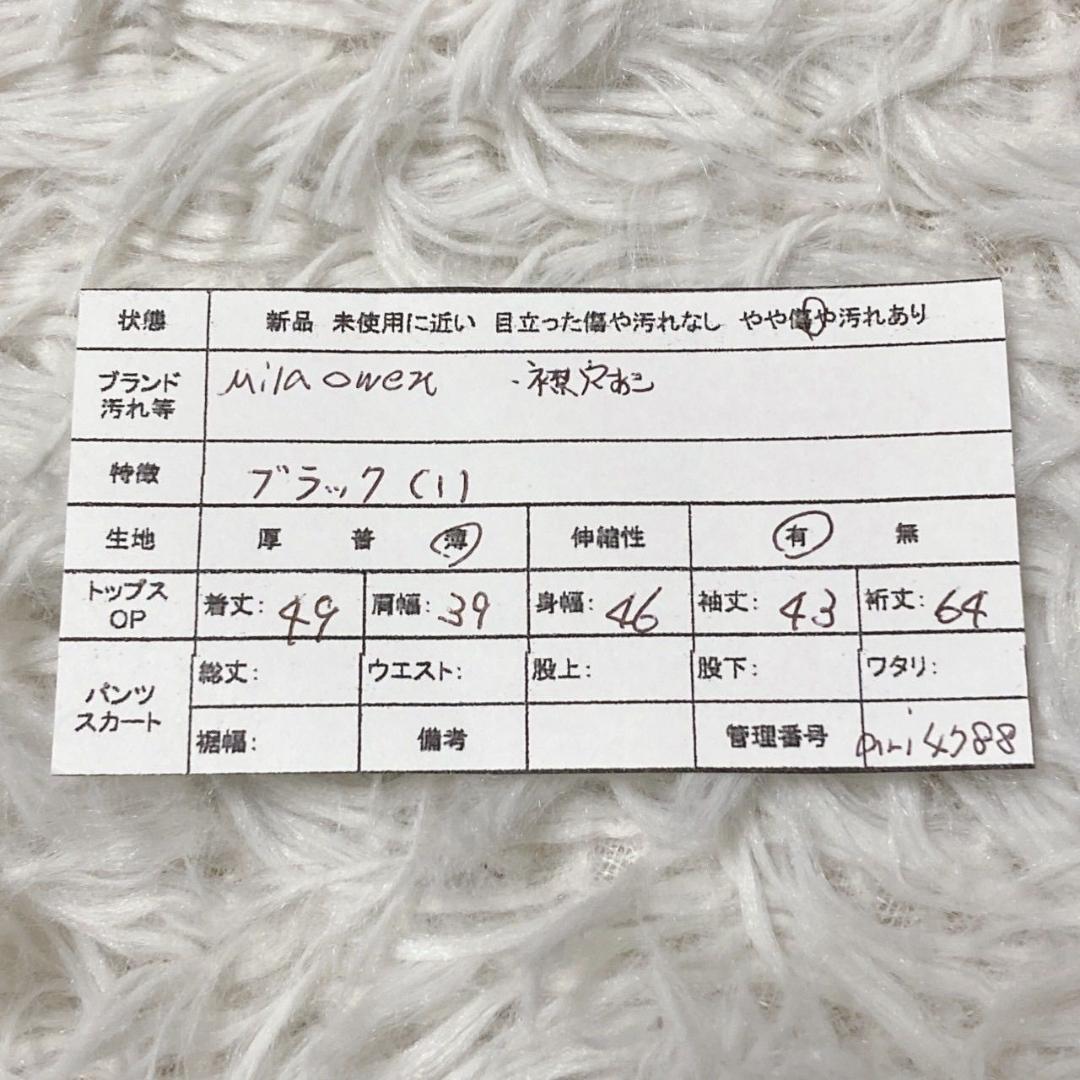 状態 新品 未使用に近い 目立った傷や汚れなし やや傷や汚れあり
ブランド 汚れ等 Mila owen ・襟穴あり
特徴 ブラック(1)
生地 厚 普 薄 伸縮性 有 無
トップス OP 着丈: 49 肩幅: 39 身幅: 46 袖丈: 43 裄丈: 64
パンツ スカート 総丈: ウエスト: 股上: 股下: ワタリ:
裾幅: 備考 管理番号